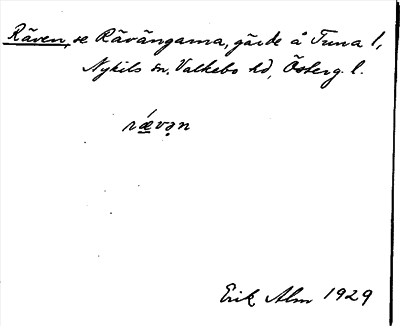 Räven, se Rävängarna, gärde å Tuna 1,
Nykils sn, Valkebo hd, Österg. l.
rǽvən
Erik Alm 1929